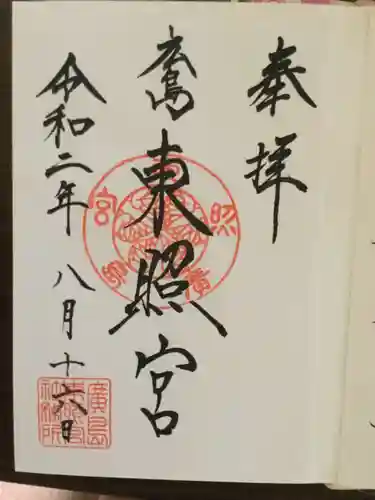 奉拝
廣島
東照宮
令和二年八月十六日
廣島
東照宮
社務所